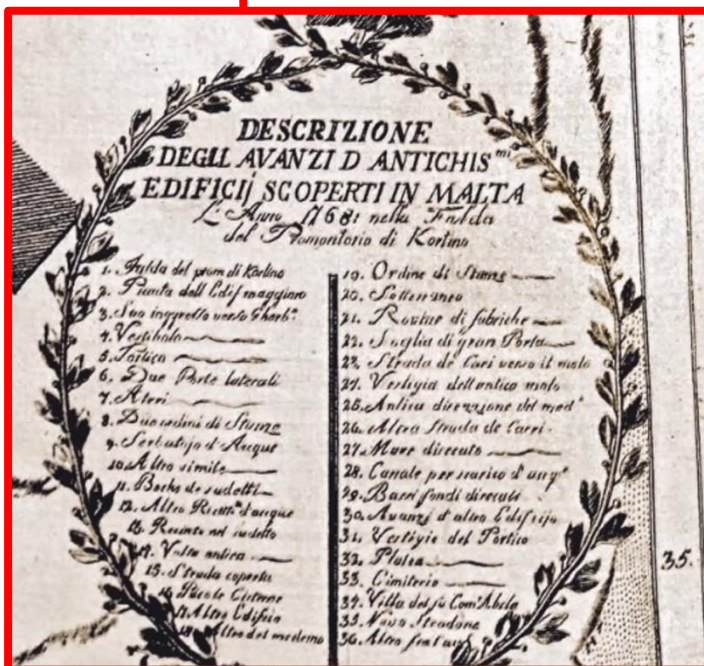 DESCRIZIONE
DEGLI AVANZI D ANTICHIS.mi
EDIFICIJ SCOPERTI IN MALTA
L'Anno 1768: nella Falda
del Promontorio di Kortino
1. Falda del prom di Kortino
2. Pianta dell Edif maggiore
3. Suo ingresso verso Gherb.o
4. Vestibolo
5. Portico
6. Due Porte laterali
7. Aterj
8. Due ordini di Stanze
9. Serbatojo d'Acque
10. Altro simile
11. Bocho de sudetti
12. Altro Ricett.o d'acque
13. Recinto nel sudetto
14. Volta antica
15. Strada coperta
16. Picole Cisterne
17. Altro Edificio
18. Altro del medemo
19. Ordine di Stanze
20. Sotterraneo
21. Rovine di fabriche
22. Soglia di gran Porta
23. Strada de Cari verso il molo
24. Vestigia dell'antico molo
25. Antica direzzione del med.o
26. Altra Strada de Carri
27. Muro diroccato
28. Canale per scarico d'acq.e
29. Bassi fondi diroccati
30. Avanzi d'altro Edificijo
31. Vestigie del Portico
32. Platea
33. Cimiterio
34. Villa del fù Com.r Abela
35. Nova Stradone
36. Altro
35.